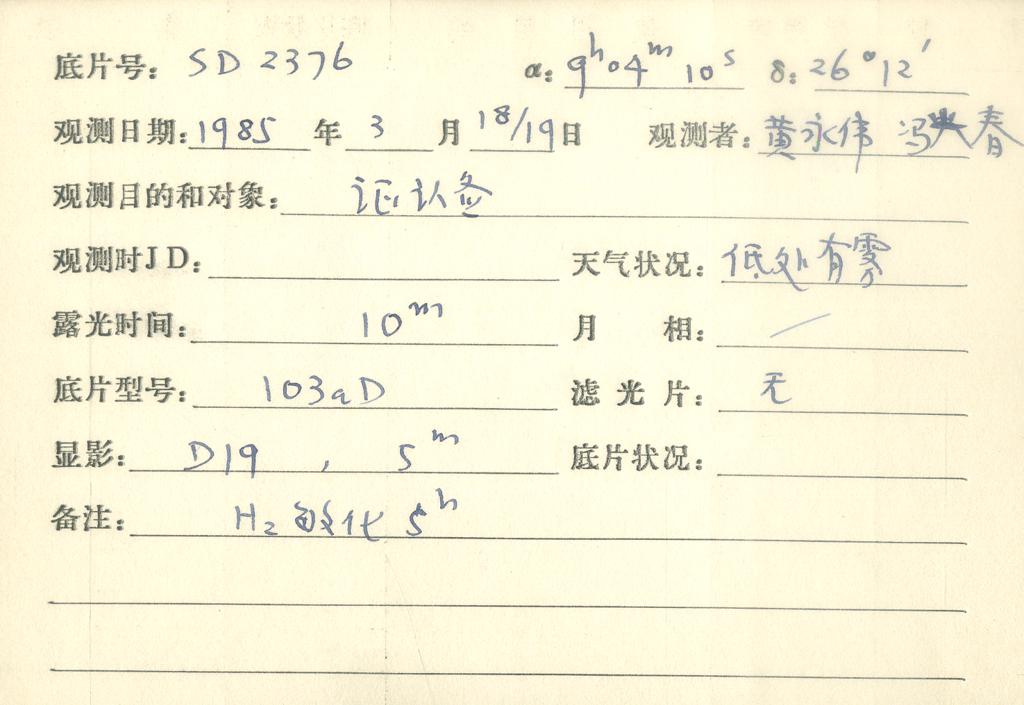 底片号: SD 2376 α: 9h04m10s δ: 26°12′
观测日期: 1985 年 3 月 18/19日 观测者: 黄永伟 冯 春
观测目的和对象: 证认
观测时JD: 天气状况: 低处有雾
露光时间: 10m 月 相: /
底片型号: 103aD 滤光片: 无
显影: D19 , 5m 底片状况:
备注: H2 敏化 5h